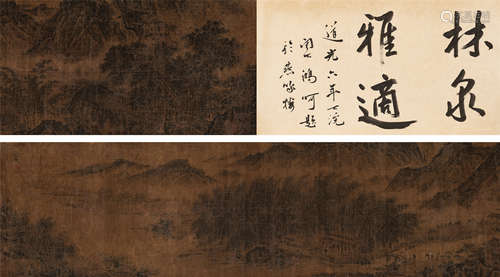 林泉
雅適
道光六年七
鴻呵題
於燕